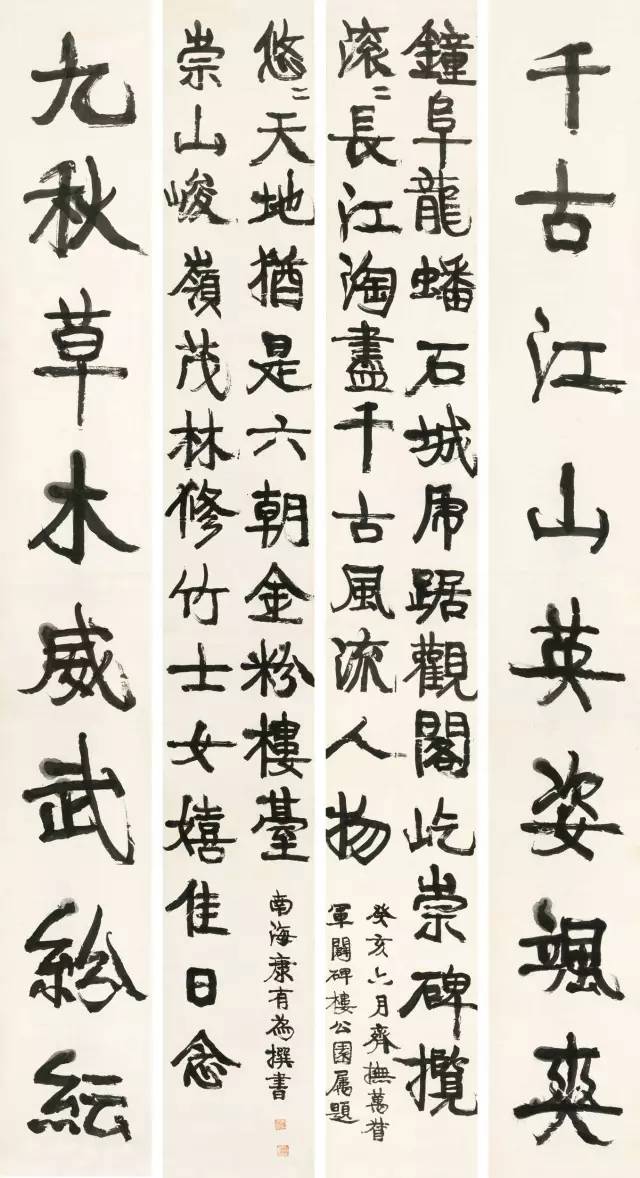 千古江山英姿颯爽
鐘阜龍蟠石城虎踞觀閣屹崇碑攬
滾〻長江淘盡千古風流人物
癸亥六月齊撫萬督
軍闢碑樓公園屬題
崇山峻嶺茂林修竹士女嬉佳日念
悠〻天地猶是六朝金粉樓臺
南海康有為撰書
九秋草木威武紛紜